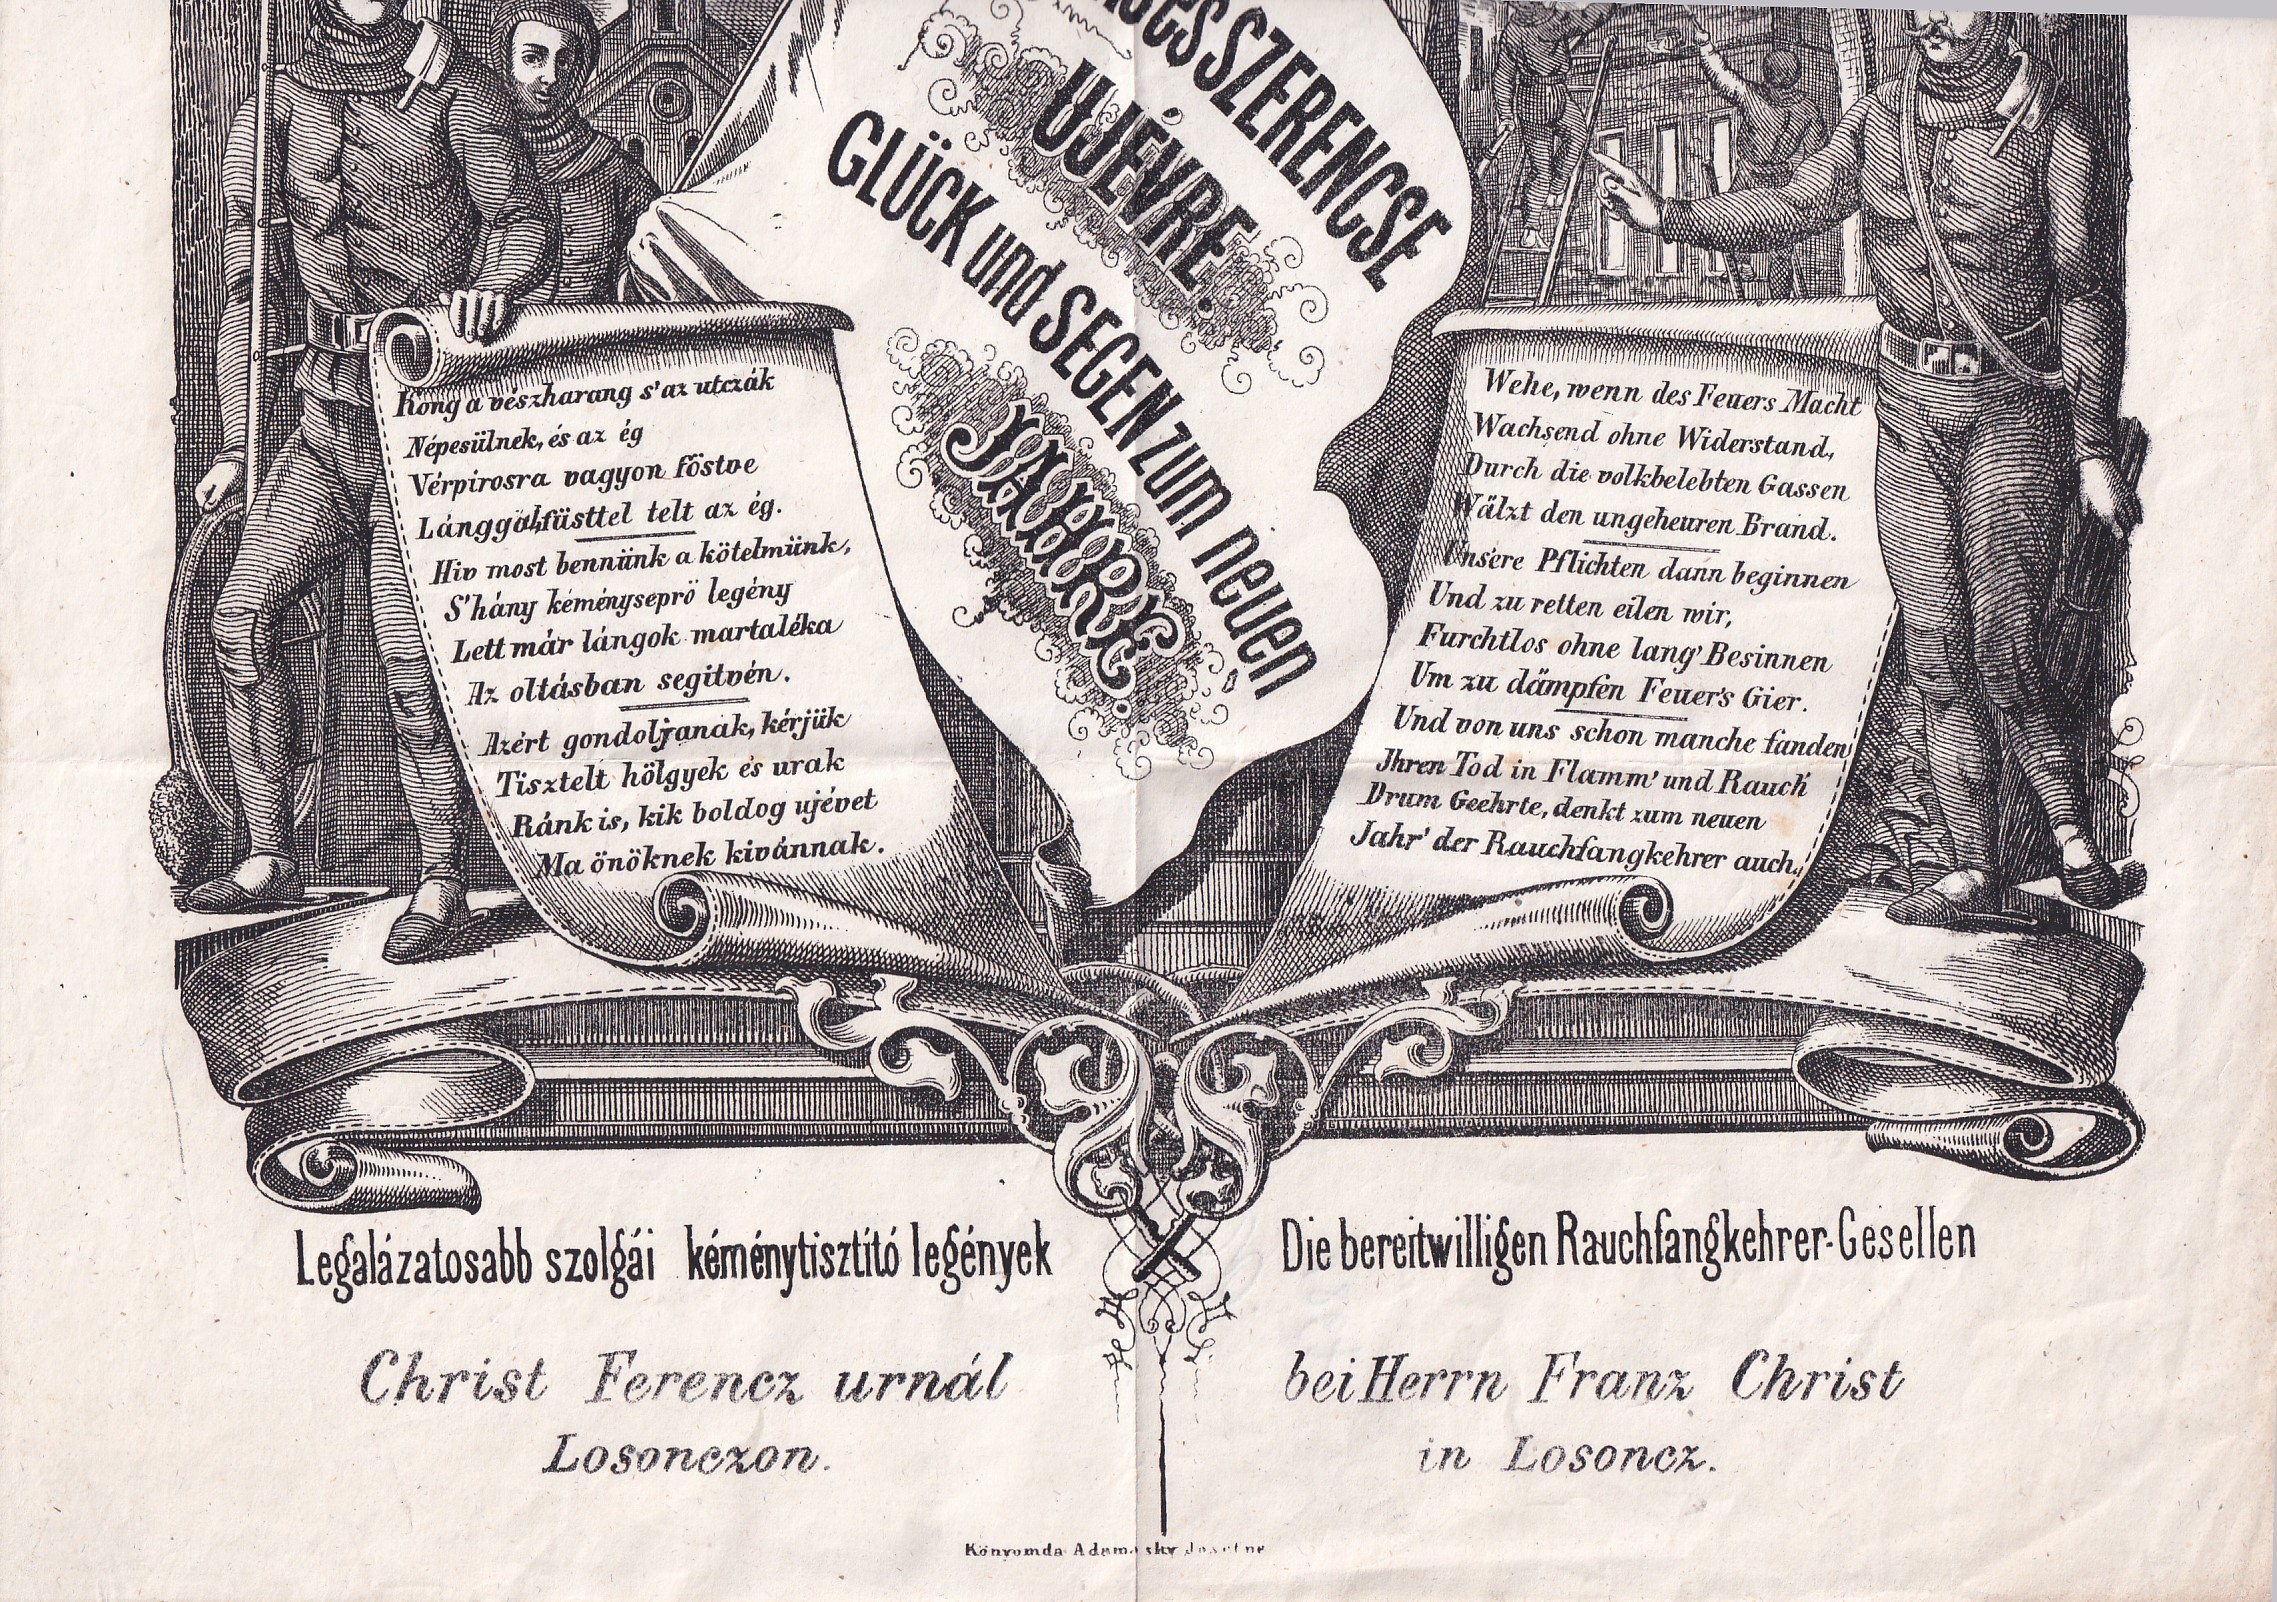 SZERENCSE
UJÉVRE.
GLÜCK und SEGEN ZUM neuen
JAHRE.
Kong a vészharang s'az utczák
Népesülnek, és az ég
Vérpirosra vagyon főstve
Lánggal, füsttel telt az ég.
Hiv most bennünk a kötelmünk,
S'hány kéményseprö legény
Lett már lángok martaléka
Az oltásban segitvén.
Azért gondoljanak, kérjük
Tisztelt hölgyek és urak
Ránk is, kik boldog ujévet
Ma önöknek kivánnak.
Wehe, wenn des Feuers Macht
Wachsend ohne Widerstand,
Durch die volkbelebten Gassen
Wälzt den ungeheuren Brand.
Unsere Pflichten dann beginnen
Und zu retten eilen wir,
Furchtlos ohne lang' Besinnen
Um zu dämpfen Feuer's Gier.
Und von uns schon manche fanden
Ihren Tod in Flamm' und Rauch
Drum Geehrte, denkt zum neuen
Jahr' der Rauchfangkehrer auch.
Legalázatosabb szolgái kéménytisztító legények
Christ Ferencz urnál
Losonczon.
Die bereitwilligen Rauchfangkehrer-Gesellen
bei Herrn Franz Christ
in Losoncz.
Könyomda